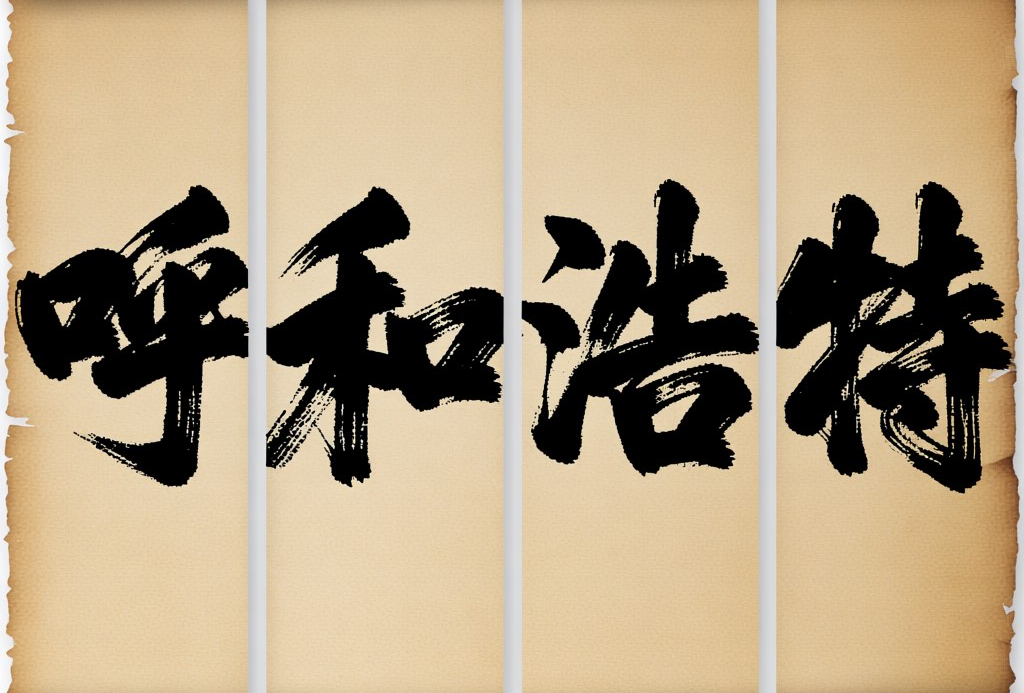 呼和浩特